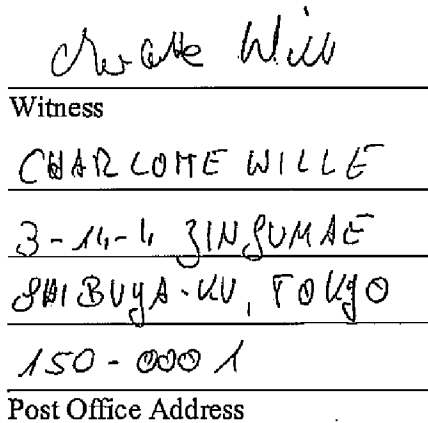 Charlotte Wille
Witness
CHARLOTTE WILLE
3-14-4 JINGUMAE
SHIBUYA-KU, TOKYO
150-0001
Post Office Address